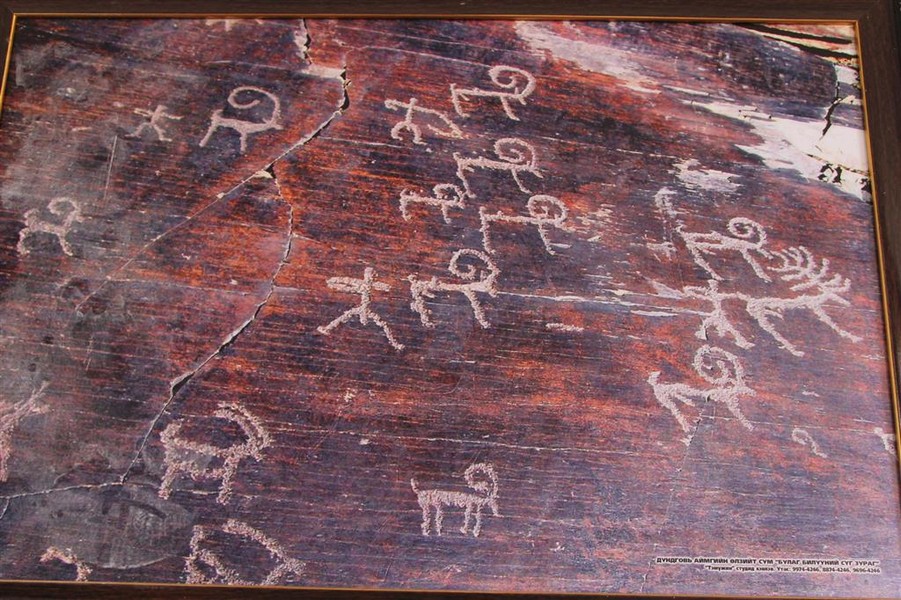 ДУНДГОВЬ АЙМГИЙН ӨЛЗИЙТ СУМ "БУЛАГ БИЛҮҮНИЙ СҮГ ЗУРАГ"
"Тэмүжин" студид хэвлэв. Утас: 9974-4246, 8874-4246, 9696-4246